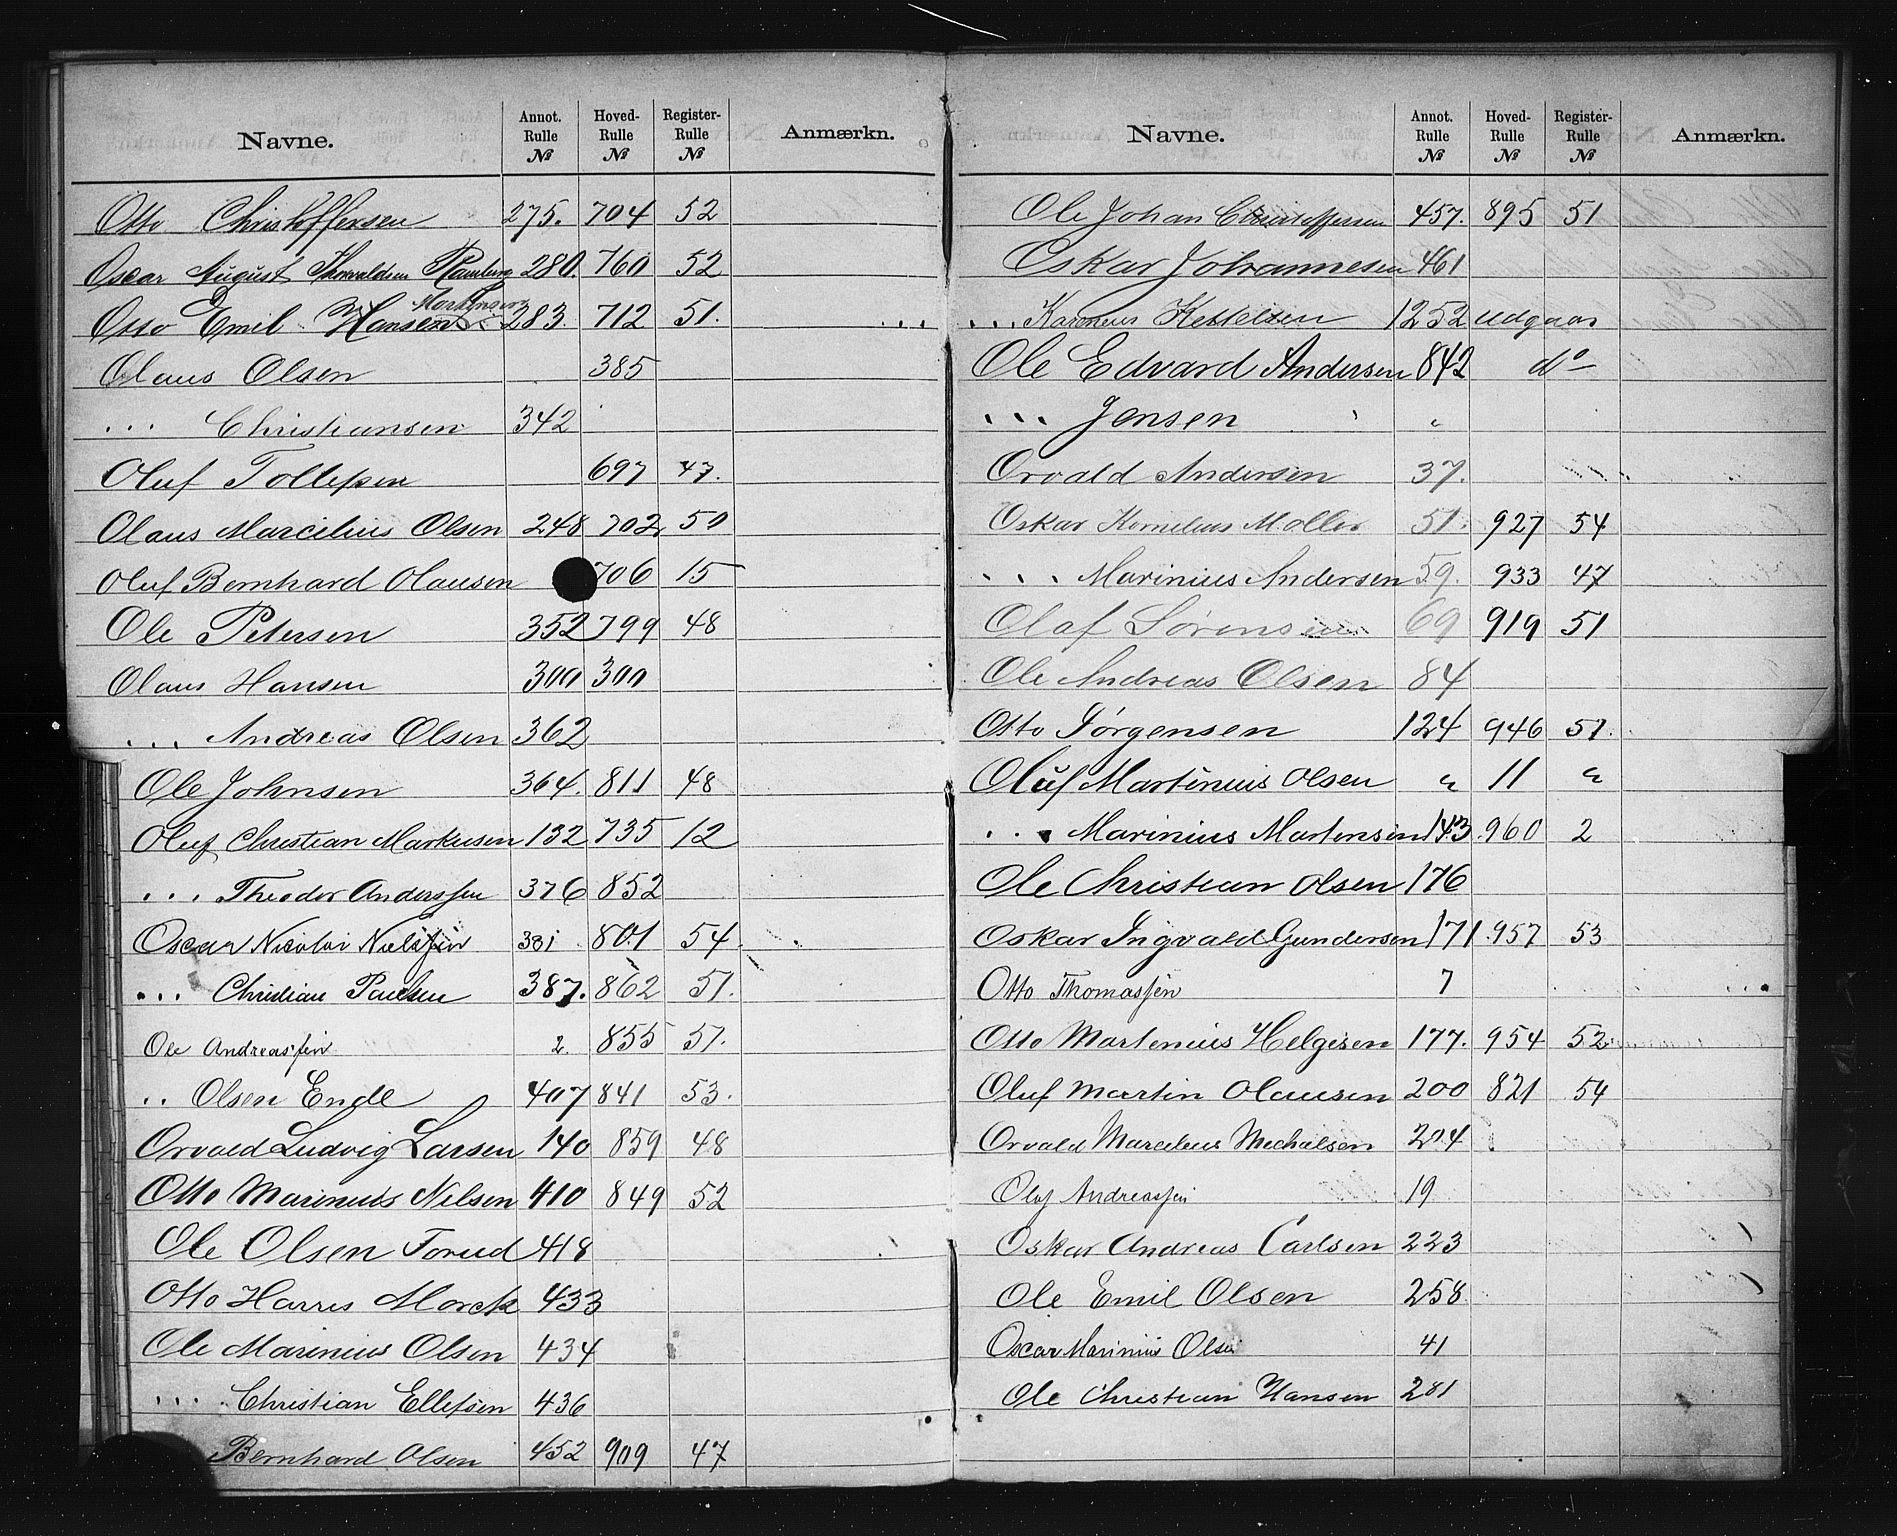 Navne. Annot. Rulle № Hoved-Rulle № Register-Rulle № Anmærkn.
Otto Christoffersen 275. 704 52
Oscar August Thorvaldsen 280. 760 52
Otto Emil Hansen Mortensen 283. 712 51.
Olaus Olsen 385
... Christiansen 342
Oluf Tollefsen 697 47.
Olaus Marcelius Olsen 248 702 50
Oluf Bernhard Olausen 706 15
Ole Petersen 352 799 48
Olaus Hansen 300 300
... Andreas Olsen 362
Ole Johnsen 364. 811 48
Oluf Christian Markusen 132 735 12
... Theodor Anderssen 376 852
Oscar Nicolai Nielssen 381 801 54
... Christian Paulsen 387. 862 51.
Ole Andreassen 2. 855 51.
.. Olsen Ende 407 841 53.
Orvald Ludvig Larsen 140 859 48
Otto Marinius Nilsen 410 849 52
Ole Olsen Torud 418
Otto Harris Morck 433
Ole Marinius Olsen 434
... Christian Ellefsen 436
Bernhard Olsen 452 909 47
Navne. Annot. Rulle № Hoved-Rulle № Register-Rulle № Anmærkn.
Ole Johan Christoffersen 457. 895 51
Oskar Johannesen 461
... ... Karenius Kettelsen 1252 udgaar
Ole Edvard Andersen 842 do
... Jensen "
Orvald Andersen 37.
Oskar Kornelius Moller 51. 927 54
... Marinius Andersen 59. 933 47
Olaf Sørensen 69 919 51
Ole Andreas Olsen 84
Otto Jørgensen 124 946 51.
Oluf Martinius Olsen " 11 "
... Marinius Martensen 143 960 2
Ole Christian Olsen 176
Oskar Ingvald Gundersen 171 957 53
Otto Thomassen 7
Otto Martenius Helgesen 177. 954 52
Oluf Martin Olausen 200 821 54
Orvald Marcelius Michalsen 204
Olaf Andreassen 19
Oskar Andreas Carlsen 223
Ole Emil Olsen 258
Oscar Marinius Olsen 41
Ole Christian Hansen 281